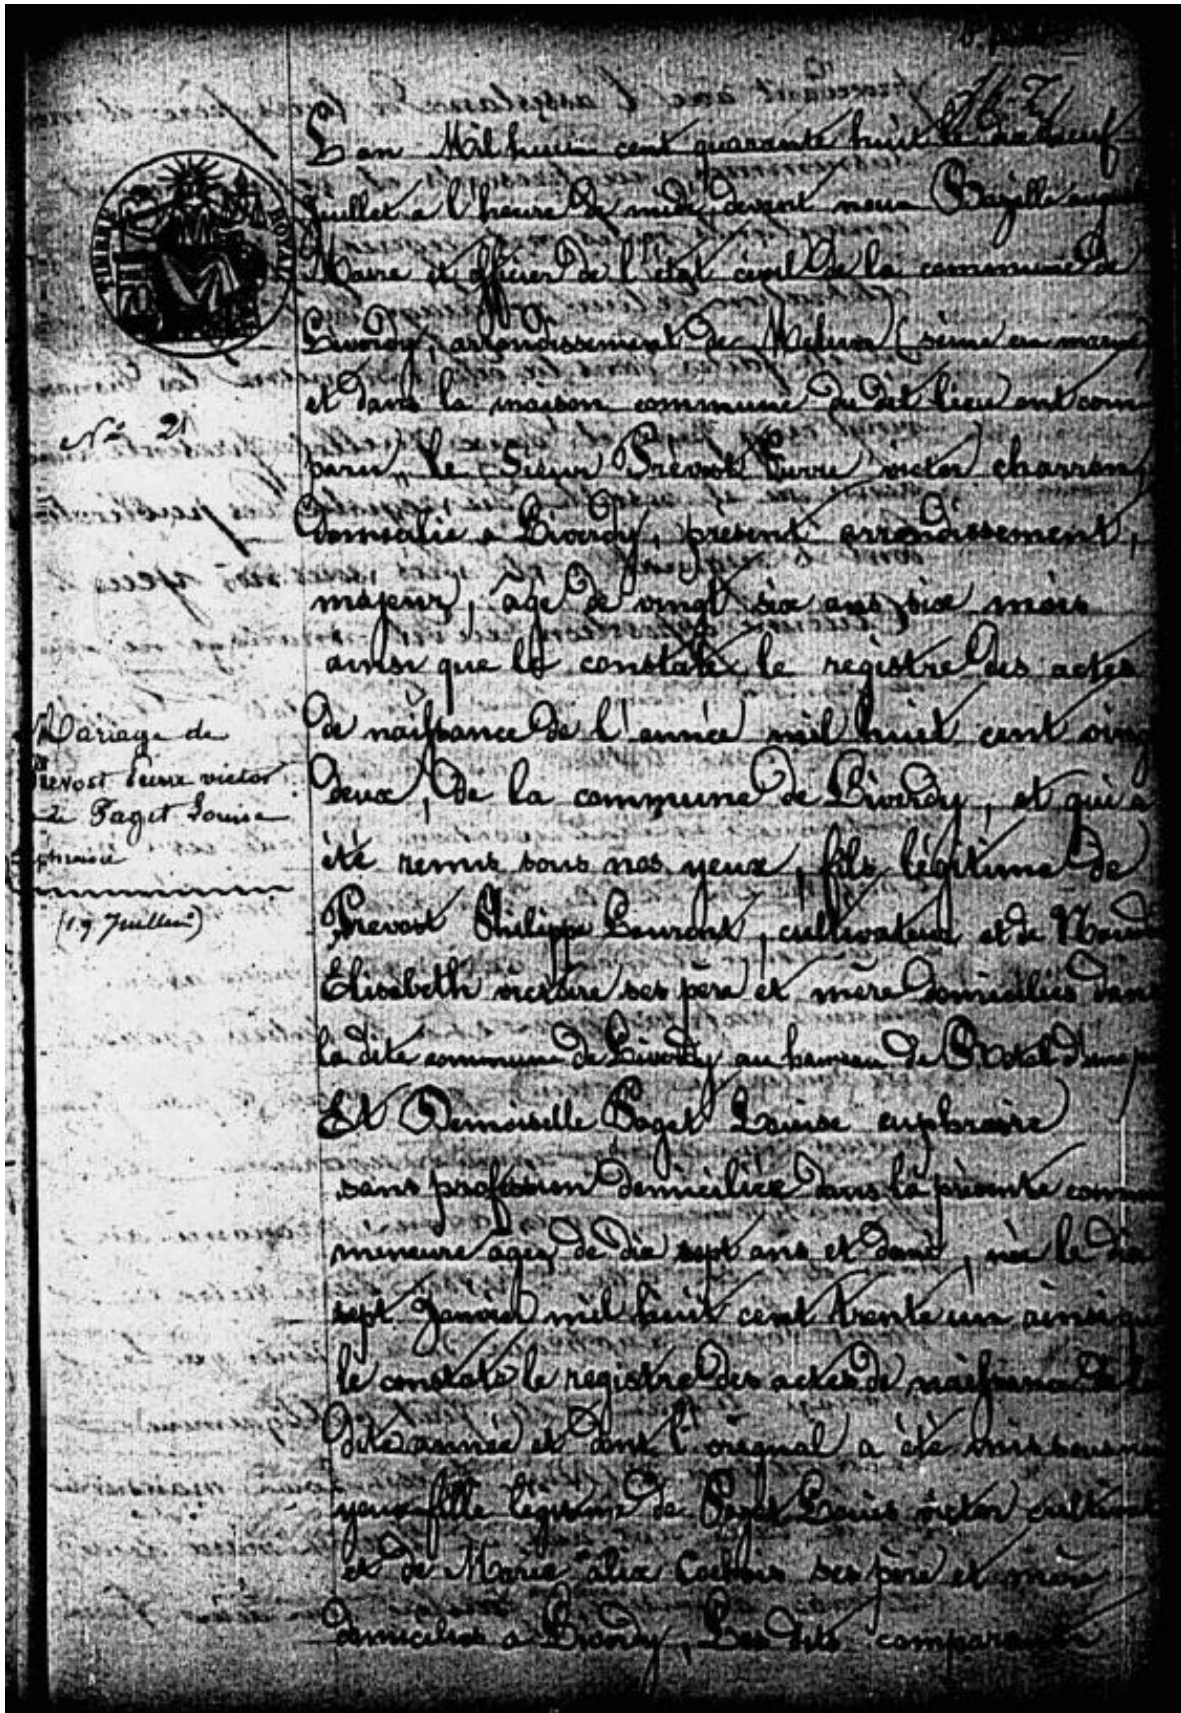 L'an Mil huit cent quarante huit le dix neuf
Juillet a l'heure de midi, devant nous Bazille
Maire et officier de l'etat civil de la commune de
Liverdy, arrondissement de Melun (seine en marne)
et dans la maison commune du dit lieu ont com
paru, le Sieur Prévost Pierre victor charron,
domicilié a Liverdy, présent arrondissement,
majeur, agé de vingt six ans six mois
ainsi que le constate le registre des actes
de naissance de l'année mil huit cent ving
deux, de la commune de Liverdy, et qui a
été remis sous nos yeux, fils légitime de
Prevost Philippe Laurent, cultivateur et de
Elisabeth victoire ses père et mère domiciliés dans
la dite commune de Liverdy au hameau de d'une part
Et Demoiselle Paget Louise euphrasie
sans profession domiciliée dans la présente commun
mineure agée de dix sept ans et demi, née le dix
sept Janvier mil huit cent trente un ainsi que
le constate le registre des actes de naissance de la
dite année et dont l'original a été mis sous nos
yeux fille légitime de Paget Louis victor cultivat
et de Marie alix ses père et mère
domiciliés a Liverdy, Les dits comparants
TIMBRE ROYAL
N° 21
Mariage de
Prevost Pierre victor
& Paget Louise
euphrasie
(19 Juillet)